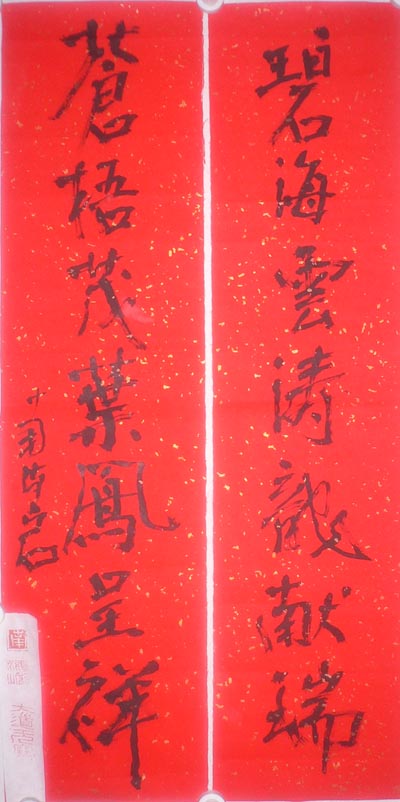 碧海雲涛龍献瑞
蒼梧茂葉鳳呈祥